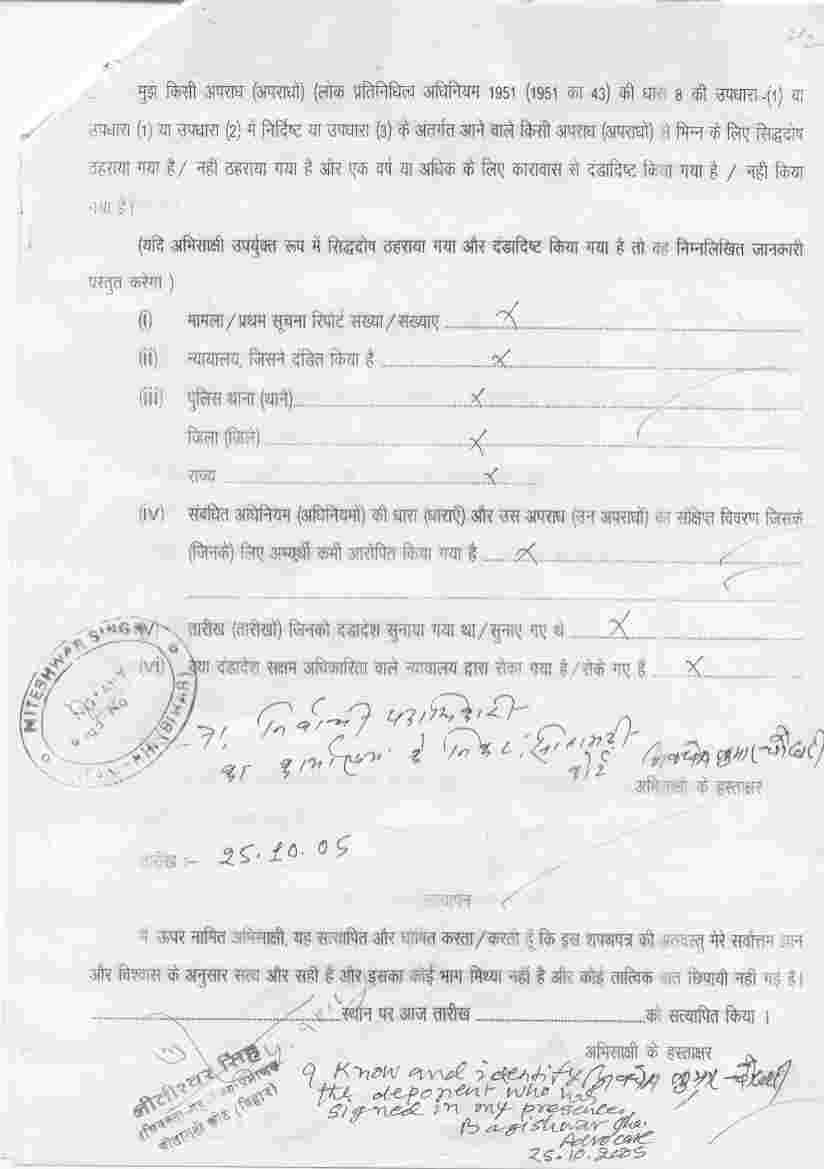 मुझ किसी अपराध (अपराधों) (लोक प्रतिनिधित्व अधिनियम 1951 (1951 का 43) की धारा 8 की उपधारा-(1) या
उपधारा (1) या उपधारा (2) में निर्दिष्ट या उपधारा (3) के अंतर्गत आने वाले किसी अपराध (अपराधों) से भिन्न के लिए सिद्धदोष
ठहराया गया है / नहीं ठहराया गया है और एक वर्ष या अधिक के लिए कारावास से दंडादिष्ट किया गया है / नहीं किया
गया है।
(यदि अभिसाक्षी उपर्युक्त रूप में सिद्धदोष ठहराया गया और दंडादिष्ट किया गया है तो वह निम्नलिखित जानकारी
प्रस्तुत करेगा)
(i) मामला / प्रथम सूचना रिपोर्ट संख्या / संख्याएं X
(ii) न्यायालय, जिसने दंडित किया है X
(iii) पुलिस थाना (थाने) X
जिला (जिले) X
राज्य X
(iv) संबंधित अधिनियम (अधिनियमों) की धारा (धाराएँ) और उस अपराध (उन अपराधों) का संक्षिप्त विवरण जिसके
(जिनके) लिए अभ्यर्थी कभी आरोपित किया गया है X
तारीख (तारीखों) जिनको दंडादेश सुनाया गया था / सुनाए गए थे X
(vi) क्या दंडादेश सक्षम अधिकारिता वाले न्यायालय द्वारा रोका गया है / रोके गए हैं X
NITESHWAR SINGH
NOTARY
निर्वाची पदाधिकारी
का कार्यालय के निकट
अभिसाक्षी के हस्ताक्षर
तारीख :- 25.10.05
सत्यापन
मैं ऊपर नामित अभिसाक्षी, यह सत्यापित और घोषित करता / करती हूँ कि इस शपथपत्र की अंतर्वस्तु मेरे सर्वोत्तम ज्ञान
और विश्वास के अनुसार सत्य और सही है और इसका कोई भाग मिथ्या नहीं है और कोई तात्विक बात छिपायी नहीं गई है।
स्थान पर आज तारीख को सत्यापित किया ।
अभिसाक्षी के हस्ताक्षर
I know and identify
the deponent who has
signed in my presence
Bagishwar Jha
Advocate
25.10.2005